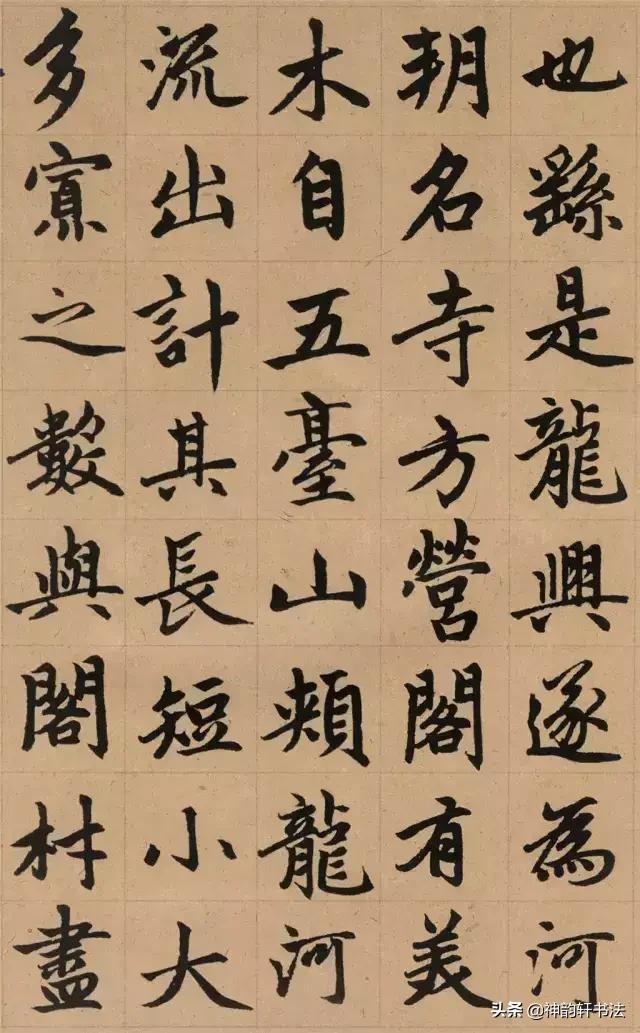 也繇是龍興遂為河
朔名寺方營閣有美
木自五臺山頰龍河
流出計其長短小大
多寡之數與閣材盡
头条 @神韵轩书法